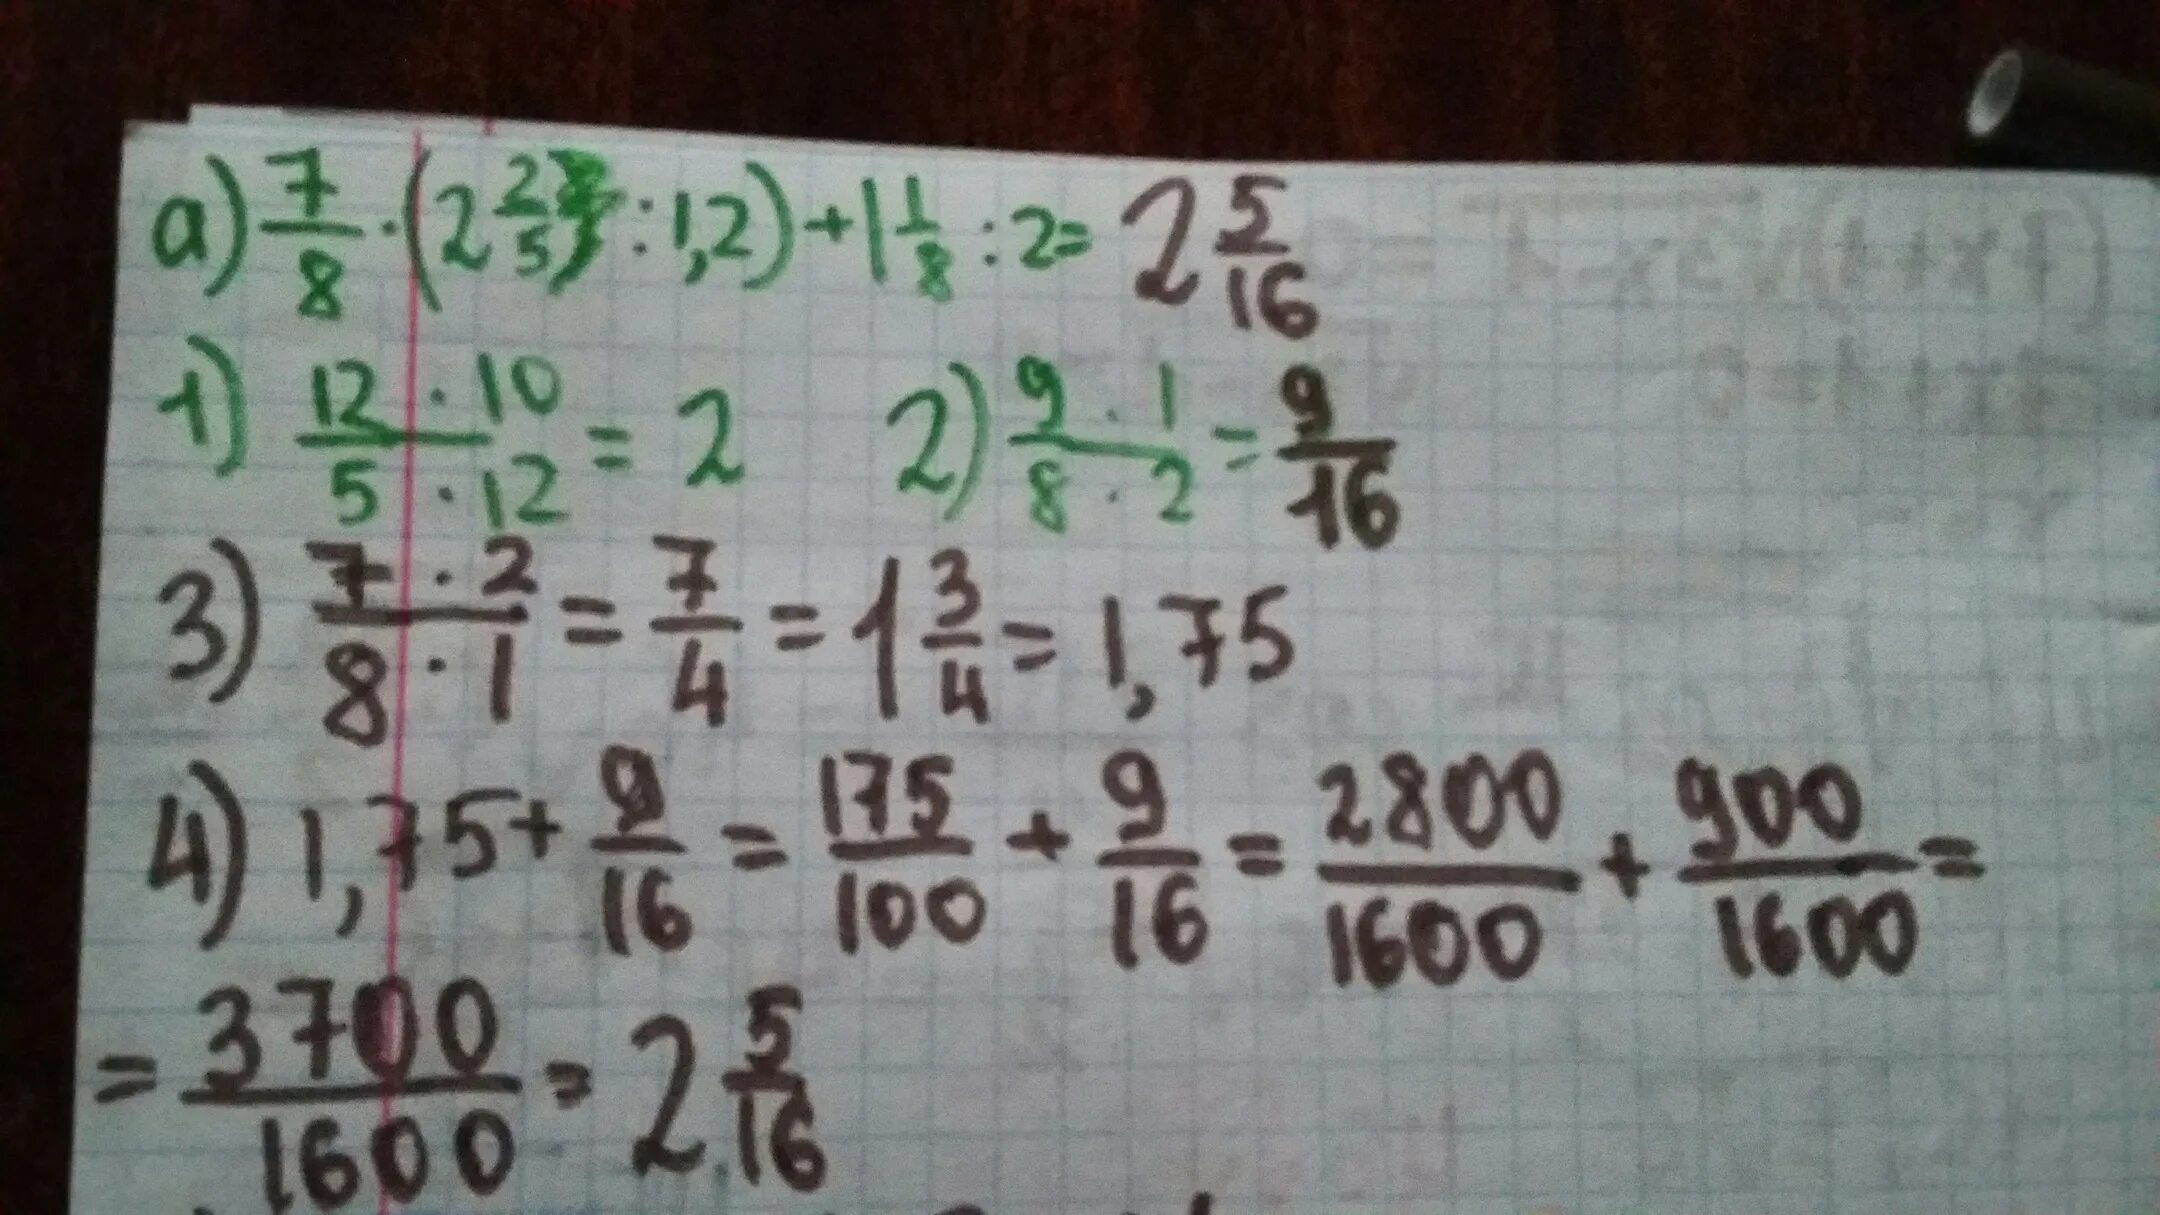 а) 7/8 · (2 2/5 : 1,2) + 1 1/8 : 2 = 2 5/16
1) 12 · 10 / 5 · 12 = 2 2) 9 · 1 / 8 · 2 = 9/16
3) 7 · 2 / 8 · 1 = 7/4 = 1 3/4 = 1,75
4) 1,75 + 9/16 = 175/100 + 9/16 = 2800/1600 + 900/1600 =
= 3700/1600 = 2 5/16